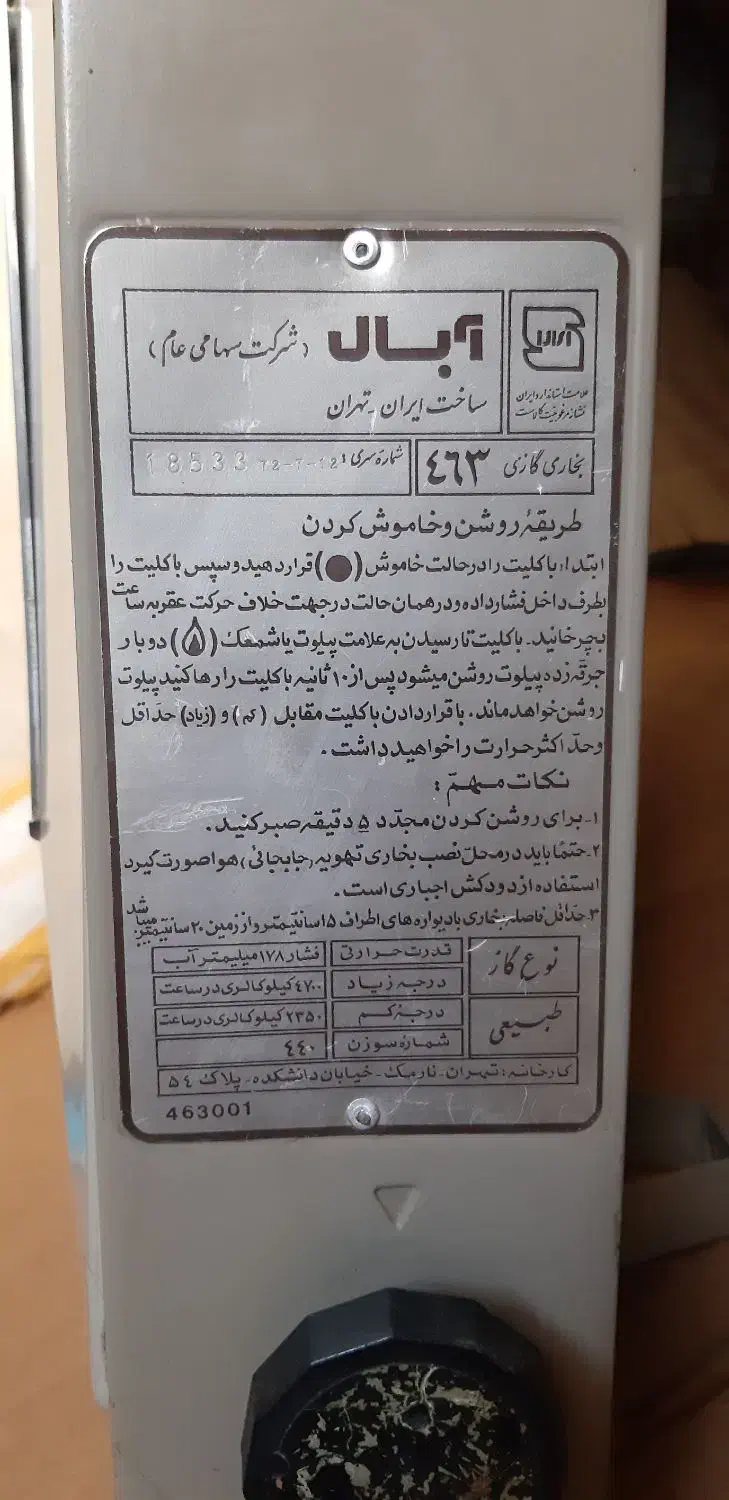 آبسال (شرکت سهامی عام)
ساخت ایران - تهران
علامت استاندارد ایران
نشانه مرغوبیت کالاست
بخاری گازی ٤٦٣
شماره سری: 72-7-12 18533
طریقهٔ روشن و خاموش کردن
ابتدا، باکلیت را در حالت خاموش (●) قرار دهید و سپس باکلیت را
بطرف داخل فشار داده و در همان حالت در جهت خلاف حرکت عقربه ساعت
بچرخانید. باکلیت تا رسیدن به علامت پیلوت یا شمعک () دوبار
جرقه زده پیلوت روشن میشود پس از ۱۰ ثانیه باکلیت را رها کنید پیلوت
روشن خواهد ماند. با قرار دادن باکلیت مقابل (کم) و (زیاد) حداقل
وحدّاکثر حرارت را خواهید داشت.
نکات مهمّ:
۱- برای روشن کردن مجدّد ۵ دقیقه صبر کنید.
۲- حتمًا باید در محل نصب بخاری تهویه (جابجائی) هوا صورت گیرد
استفاده از دودکش اجباری است.
۳- حدّاقل فاصله بخاری با دیواره های اطراف ۱۵ سانتیمتر و از زمین ۲۰ سانتیمتر میباشد
نوع گاز
طبیعی
قدرت حرارتی فشار ۱۷۸ میلیمتر آب
درجه زیاد ٤٧٠٠ کیلوکالری در ساعت
درجه کم ۲۳۵۰ کیلوکالری در ساعت
شماره سوزن ٤٤٠
کارخانه: تهران - نارمک - خیابان دانشکده - پلاک ٥٤
463001